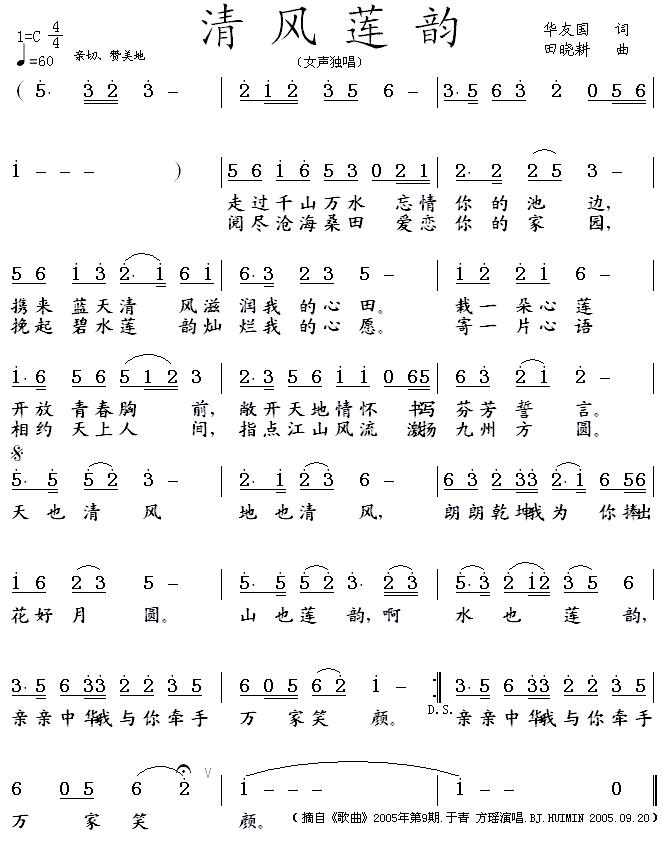 清风莲韵
1=C 4/4
♩=60 亲切、赞美地
（女声独唱）
华友国 词
田晓耕 曲
( 5· 3 2 3 – | 2 1 2 3 5 6 – | 3· 5 6 3 2 0 5 6 |
1 – – – ) | 5 6 1 6 5 3 0 2 1 | 2· 2 2 5 3 – |
走过千山万水 忘情 你的池 边，
阅尽沧海桑田 爱恋 你的家 园，
5 6 1 3 2· 1 6 1 | 6· 3 2 3 5 – | 1 2 2 1 6 – |
携来 蓝天清 风滋 润我 的心 田。 栽一 朵心 莲
挽起 碧水莲 韵灿 烂我 的心 愿。 寄一 片心 语
1· 6 5 6 5 1 2 3 | 2· 3 5 6 1 1 0 65 | 6 3 2 1 2 – |
开放 青春胸 前， 敞开天地情怀 书写 芬芳 誓 言。
相约 天上人 间， 指点江山风流 激扬 九州 方 圆。
5· 5 5 2 3 – | 2· 1 2 3 6 – | 6 3 2 33 2· 1 6 56 |
天也清 风 地也清 风， 朗朗乾坤我为 你捧出
1 6 2 3 5 – | 5· 5 5 2 3· 2 3 | 5· 3 2 12 3 5 6 |
花好月 圆。 山也莲 韵，啊 水也 莲 韵，
3· 5 6 33 2 2 3 5 | 6 0 5 6 2 1 – :‖ 3· 5 6 33 2 2 3 5 |
亲亲中华我与你牵手 万 家笑 颜。 D.S. 亲亲中华我与你牵手
6 0 5 6 2 V | 1 – – – | 1 – – 0 ‖
万 家 笑 颜。 （摘自《歌曲》2005年第9期.于青 方瑶演唱.BJ.HUIMIN 2005.09.20）